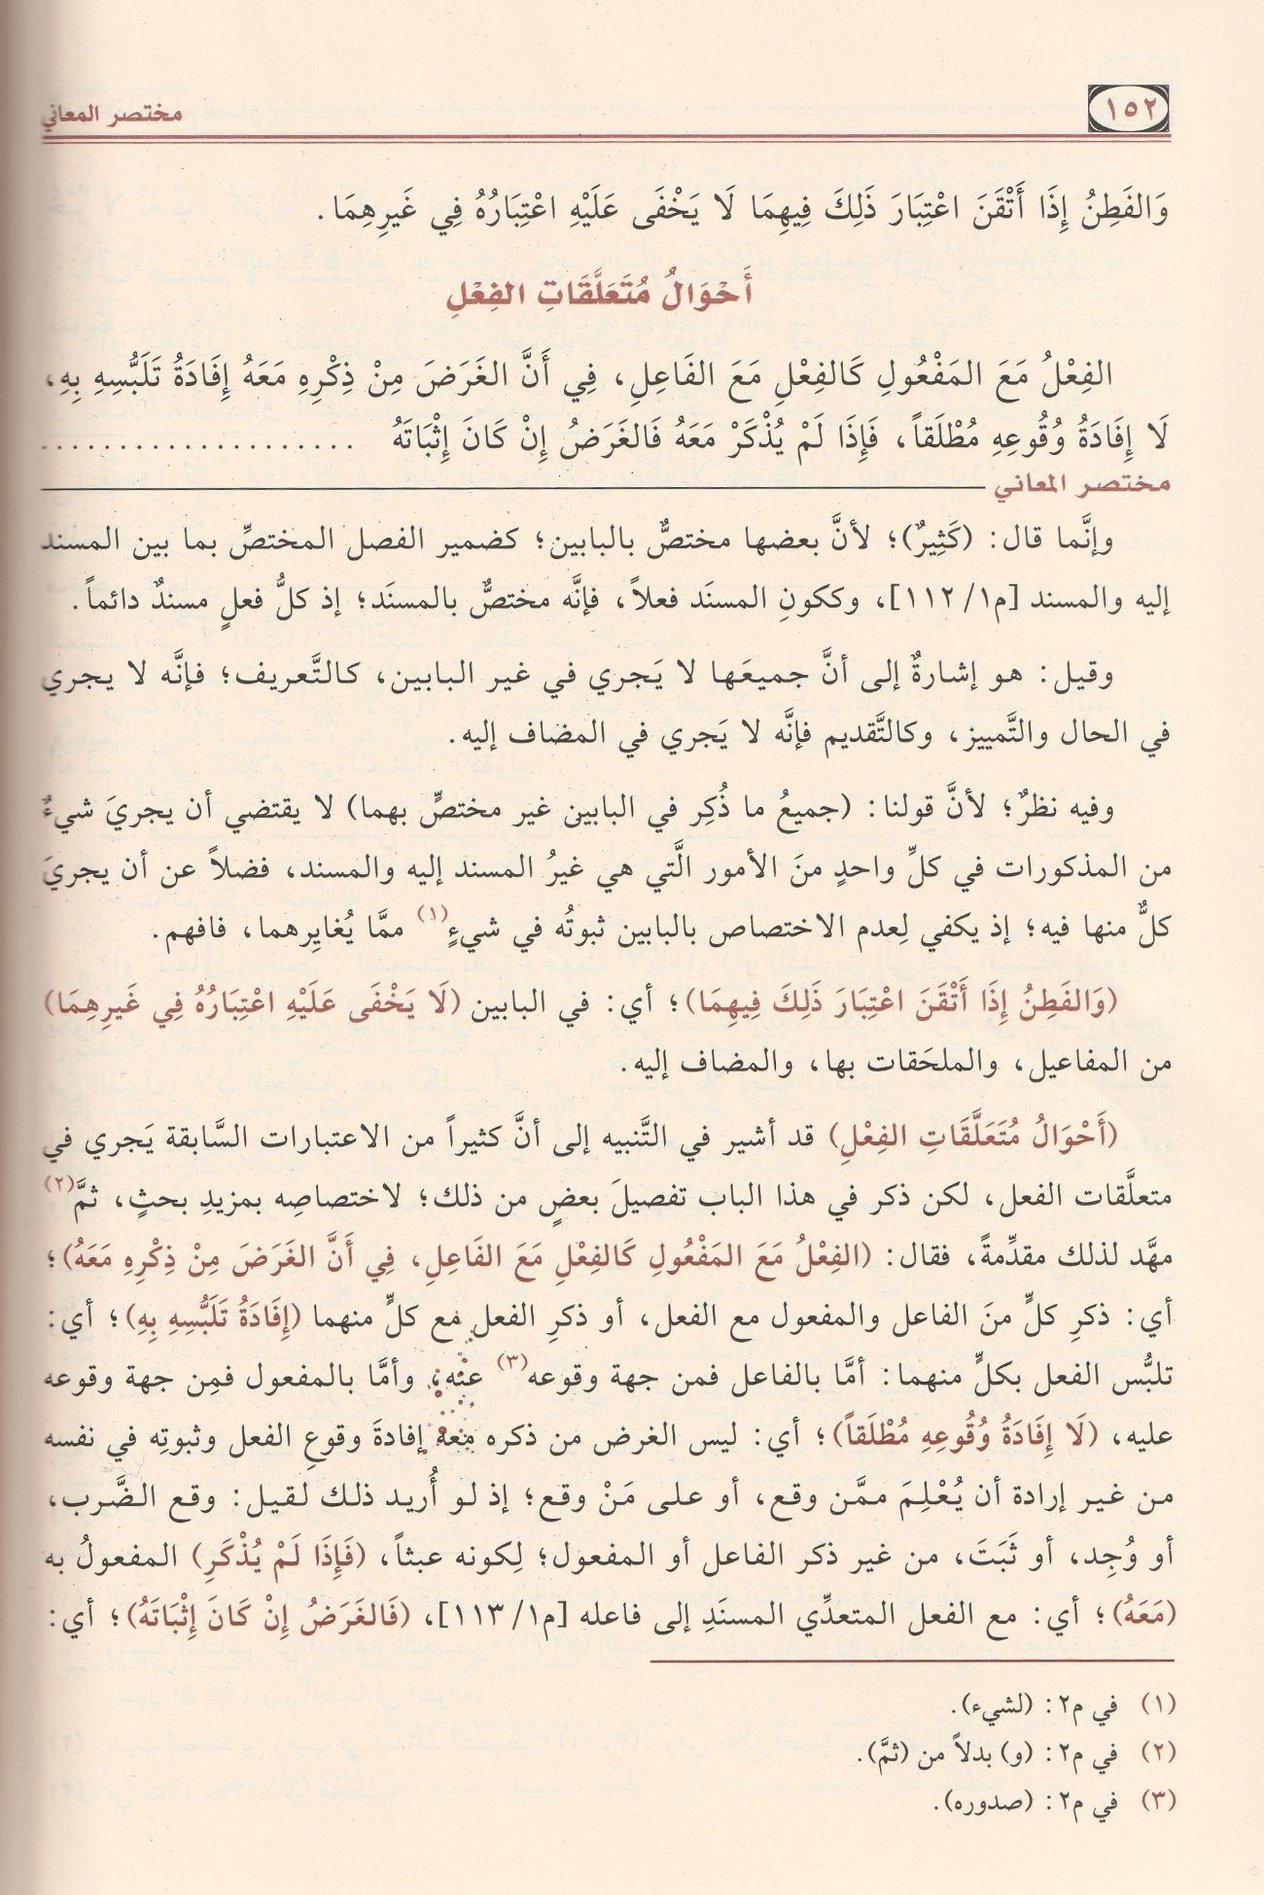 ١٥٢
مختصر المعاني
وَالفَطِنُ إِذَا أَتْقَنَ اعْتِبَارَ ذَلِكَ فِيهِمَا لَا يَخْفَى عَلَيْهِ اعْتِبَارُهُ فِي غَيرِهِمَا.
أَحْوَالُ مُتَعَلَّقَاتِ الفِعْلِ
الفِعْلُ مَعَ المَفْعُولِ كَالفِعْلِ مَعَ الفَاعِلِ، فِي أَنَّ الغَرَضَ مِنْ ذِكْرِهِ مَعَهُ إِفَادَةُ تَلَبُّسِهِ بِهِ،
لَا إِفَادَةُ وُقُوعِهِ مُطْلَقاً، فَإِذَا لَمْ يُذْكَرْ مَعَهُ فَالغَرَضُ إِنْ كَانَ إِثْبَاتَهُ ....................
مختصر المعاني
وإنَّما قال: (كَثِيرٌ)؛ لأنَّ بعضها مختصٌّ بالبابين؛ كضمير الفصل المختصِّ بما بين المسند
إليه والمسند [م١/ ١١٢]، وككونِ المسنَد فعلاً، فإنَّه مختصٌّ بالمسنَد؛ إذ كلُّ فعلٍ مسندٌ دائماً.
وقيل: هو إشارةٌ إلى أنَّ جميعَها لا يَجري في غير البابين، كالتَّعريف؛ فإنَّه لا يجري
في الحال والتَّمييز، وكالتَّقديم فإنَّه لا يَجري في المضاف إليه.
وفيه نظرٌ؛ لأنَّ قولنا: (جميعُ ما ذُكِر في البابين غير مختصٍّ بهما) لا يقتضي أن يجريَ شيءٌ
من المذكورات في كلِّ واحدٍ منَ الأمور الَّتي هي غيرُ المسند إليه والمسند، فضلاً عن أن يجريَ
كلٌّ منها فيه؛ إذ يكفي لِعدم الاختصاص بالبابين ثبوتُه في شيءٍ(١) ممَّا يُغايِرهما، فافهم.
(وَالفَطِنُ إِذَا أَتْقَنَ اعْتِبَارَ ذَلِكَ فِيهِمَا)؛ أي: في البابين (لَا يَخْفَى عَلَيْهِ اعْتِبَارُهُ فِي غَيرِهِمَا)
من المفاعيل، والملحَقات بها، والمضاف إليه.
(أَحْوَالُ مُتَعَلَّقَاتِ الفِعْلِ) قد أشير في التَّنبيه إلى أنَّ كثيراً من الاعتبارات السَّابقة يَجري في
متعلَّقات الفعل، لكن ذكر في هذا الباب تفصيلَ بعضٍ من ذلك؛ لاختصاصِه بمزيدِ بحثٍ، ثمَّ(٢)
مهَّد لذلك مقدِّمةً، فقال: (الفِعْلُ مَعَ المَفْعُولِ كَالفِعْلِ مَعَ الفَاعِلِ، فِي أَنَّ الغَرَضَ مِنْ ذِكْرِهِ مَعَهُ)؛
أي: ذكرِ كلٍّ منَ الفاعل والمفعول مع الفعل، أو ذكرِ الفعل مع كلٍّ منهما (إِفَادَةُ تَلَبُّسِهِ بِهِ)؛ أي:
تلبُّس الفعل بكلٍّ منهما: أمَّا بالفاعل فمن جهة وقوعه(٣) عنه، وأمَّا بالمفعول فمِن جهة وقوعه
عليه، (لَا إِفَادَةُ وُقُوعِهِ مُطْلَقاً)؛ أي: ليس الغرض من ذكره معه إفادةَ وقوعِ الفعل وثبوتِه في نفسه
من غير إرادة أن يُعْلِمَ ممَّن وقع، أو على مَنْ وقع؛ إذ لو أُريد ذلك لقيل: وقع الضَّرب،
أو وُجِد، أو ثَبَتَ، من غير ذكر الفاعل أو المفعول؛ لِكونه عبثاً، (فَإِذَا لَمْ يُذْكَرِ) المفعولُ به
(مَعَهُ)؛ أي: مع الفعل المتعدِّي المسنَدِ إلى فاعله [م١/ ١١٣]، (فَالغَرَضُ إِنْ كَانَ إِثْبَاتَهُ)؛ أي:
(١) في م٢: (لشيء).
(٢) في م٢: (و) بدلاً من (ثمَّ).
(٣) في م٢: (صدوره).